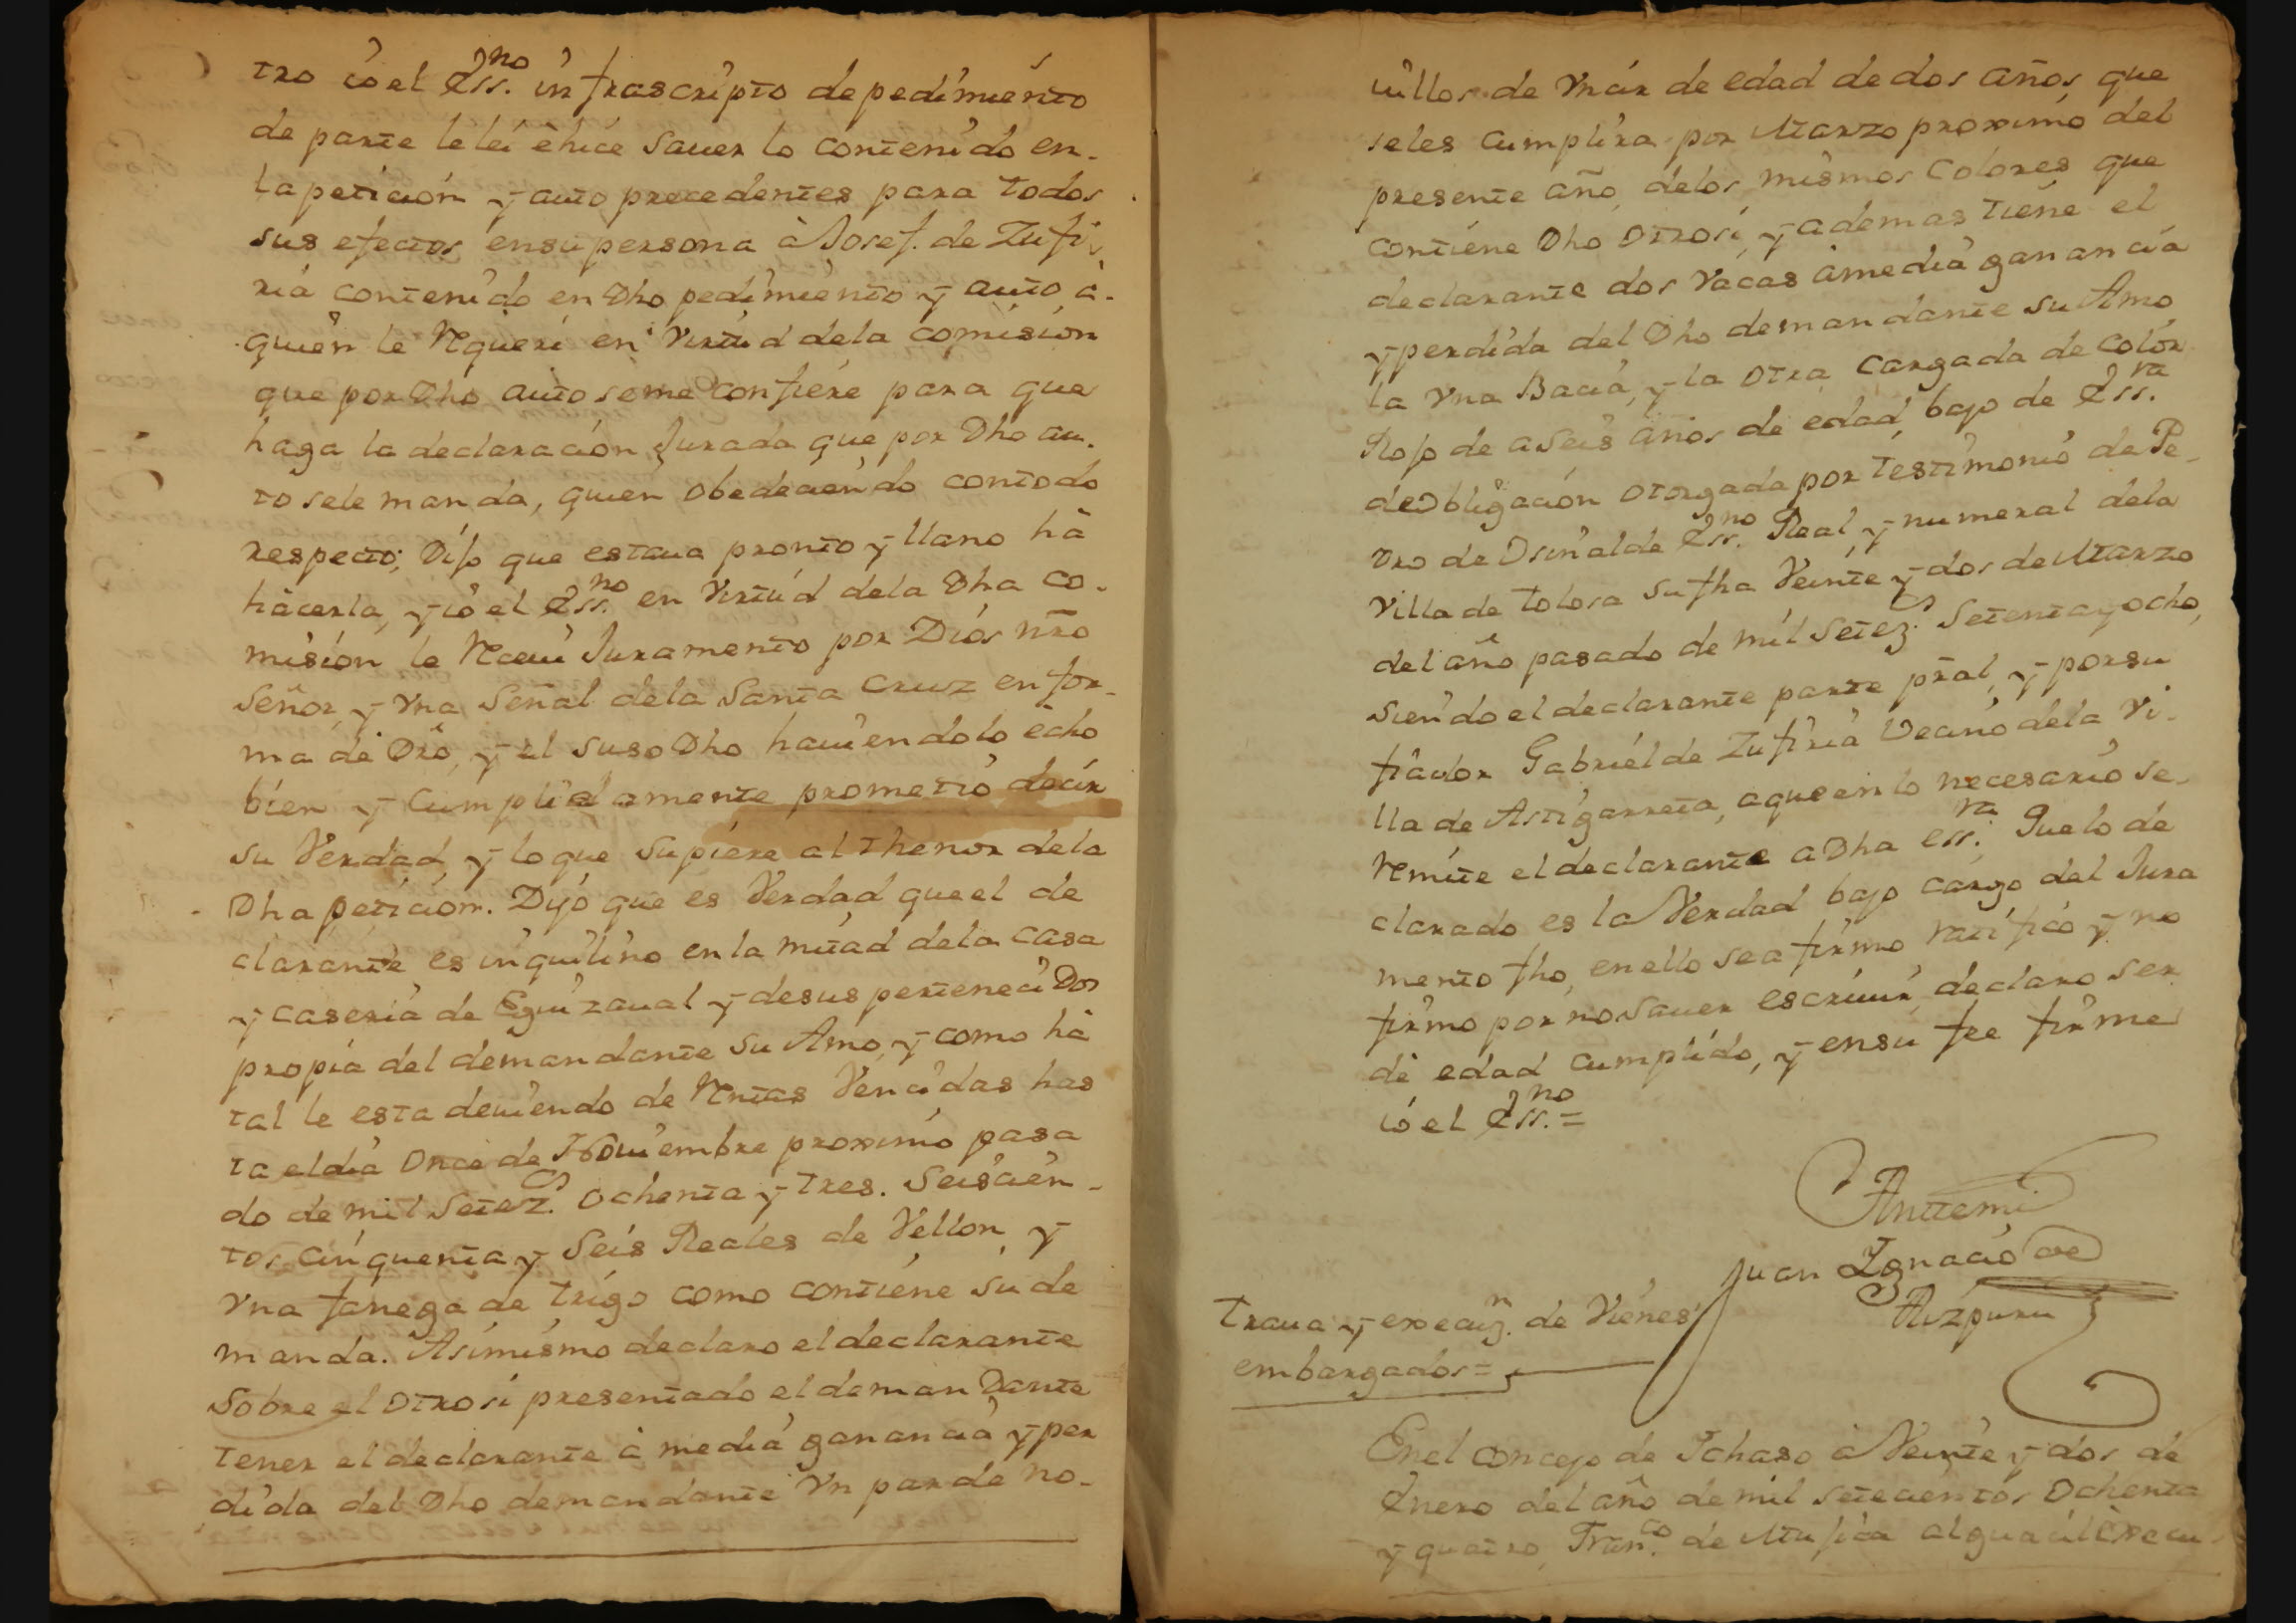 tro ió el Essno. infrascripto de pedimiento
de parte le lei è hice sauer lo contenido en
la peticion y auto precedentes para todos
sus efectos en su persona à Josef. de Zufi
ria contenido en Dho pedimiento y auto à
quien le Requeri en virtud dela comision
que por Dho auto se me confiere para que
haga la declaracion Jurada que por Dho au
to sele manda, quien obedeciendo con todo
respecto; Dijo que estaua pronto y llano hà
hàcerla, y ió el Essno. en virtud dela Dha co
mision le Receui Juramento por Dios nro
Señor, y vna señal dela Santa Cruz en for
ma de Dro, y el suso Dho hauiendolo echo
bien y Cumplidamente prometio decir
su Verdad, y lo que supiere al thenor dela
Dha peticion. Dijo que es Verdad que el de
clarante es inquilino en la mitad dela casa
y caseria de Eguizaual y de sus perteneciDos
propia del demandante su Amo, y como hà
tal le esta deuiendo de Rentas Vencidas has
ta el dia Once de Nouiembre proximo pasa
do de mil Setez.s ochenta y tres. Seiscien
tos cinquenta y Seis Reales de Vellon y
vna fanega de trigo como contiene su de
manda. Asimismo declaro el declarante
Sobre el otrosi presentado el demanDante
tener el declarante à media ganancia y per
dida del Dho demandante Vn par de no-
uillos de Ymár de edad de dos años, que
seles cumplira por Marzo proximo del
presente año, delos mismos Colores que
contiene Dho otrosi, y ademas tiene el
declarante dos Vacas à media ganancia
y perdida del Dho demandante su Amo
la vna Bacia, y la otra Cargada de Color
Rojo de a Seis años de edad, bajo de Essra.
de obligacion otorgada por testimonio de Pe
dro de Osinalde Essno. Real y numeral dela
Villa de tolosa su fha Veinte y dos de Marzo
del año pasado de mil Setez.s Setenta y ocho,
siendo el declarante parte pral, y por su
fiador Gabriel de Zufiria Vecino dela vi
lla de Astigarreta, a que en lo necesario se
Remite el declarante a Dha essra. Que lo de
clarado es la Verdad bajo cargo del Jura
mento fho, en ello se afirmo ratifico y no
firmo por no Sauer escriuir, declaro ser
de edad cumplido, y en su fee firme
ió el Essno. =
Antemi
Juan Ignacio de
Aizpuru
Traua y execuz.n de Vienes
embargados =
En el concejo de Ichaso à Veinte y dos de
Enero del año de mil setecientos Ochenta
y quatro, Fran.co de Mujica alguacil Execu